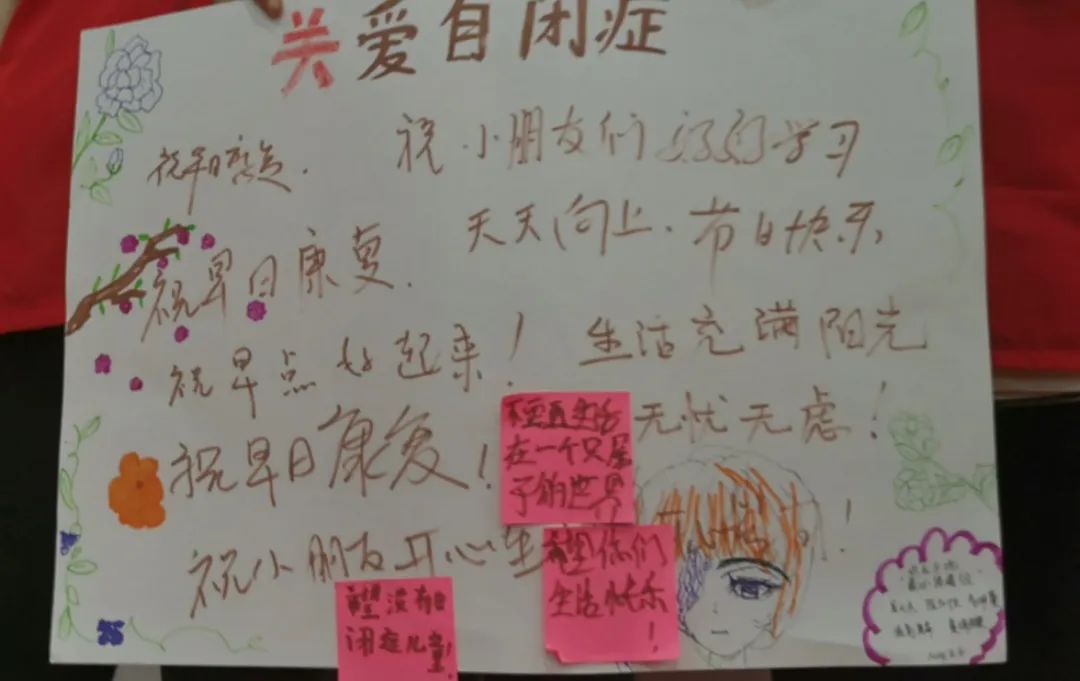 关爱自闭症
祝小朋友们好好学习
天天向上.节日快乐
祝早日康复.
祝早日康复.
祝早点好起来!
生活充满阳光
无忧无虑!
祝早日康复!
祝小朋友开心生
不要再生活
在一个只属
于的世界
希望你们
生活快乐
!
希望没有自
闭症儿童!